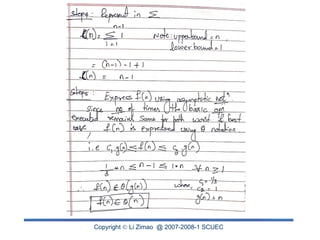 step4: Represent in Σ
n-1
f(n) = Σ 1 Note: upperbound = n
i=1 lowerbound = 1
= (n-1) - 1 + 1
f(n) = n-1
step5: Express f(n) using asymptotic
since no. of times the basic
executed remains same for both worst & best
case, f(n) is expressed using θ notation
i.e c₁ g(n) ≤ f(n) ≤ c₂ g(n)
1/3 * n ≤ n-1 ≤ 1*n ∀ n ≥ 1
∴ f(n) ∈ θ(g(n)) where, c₁ = 1/3
c₂ = 1
f(n) ∈ θ(n) g(n) = n
Copyright © Li Zimao @ 2007-2008-1 SCUEC